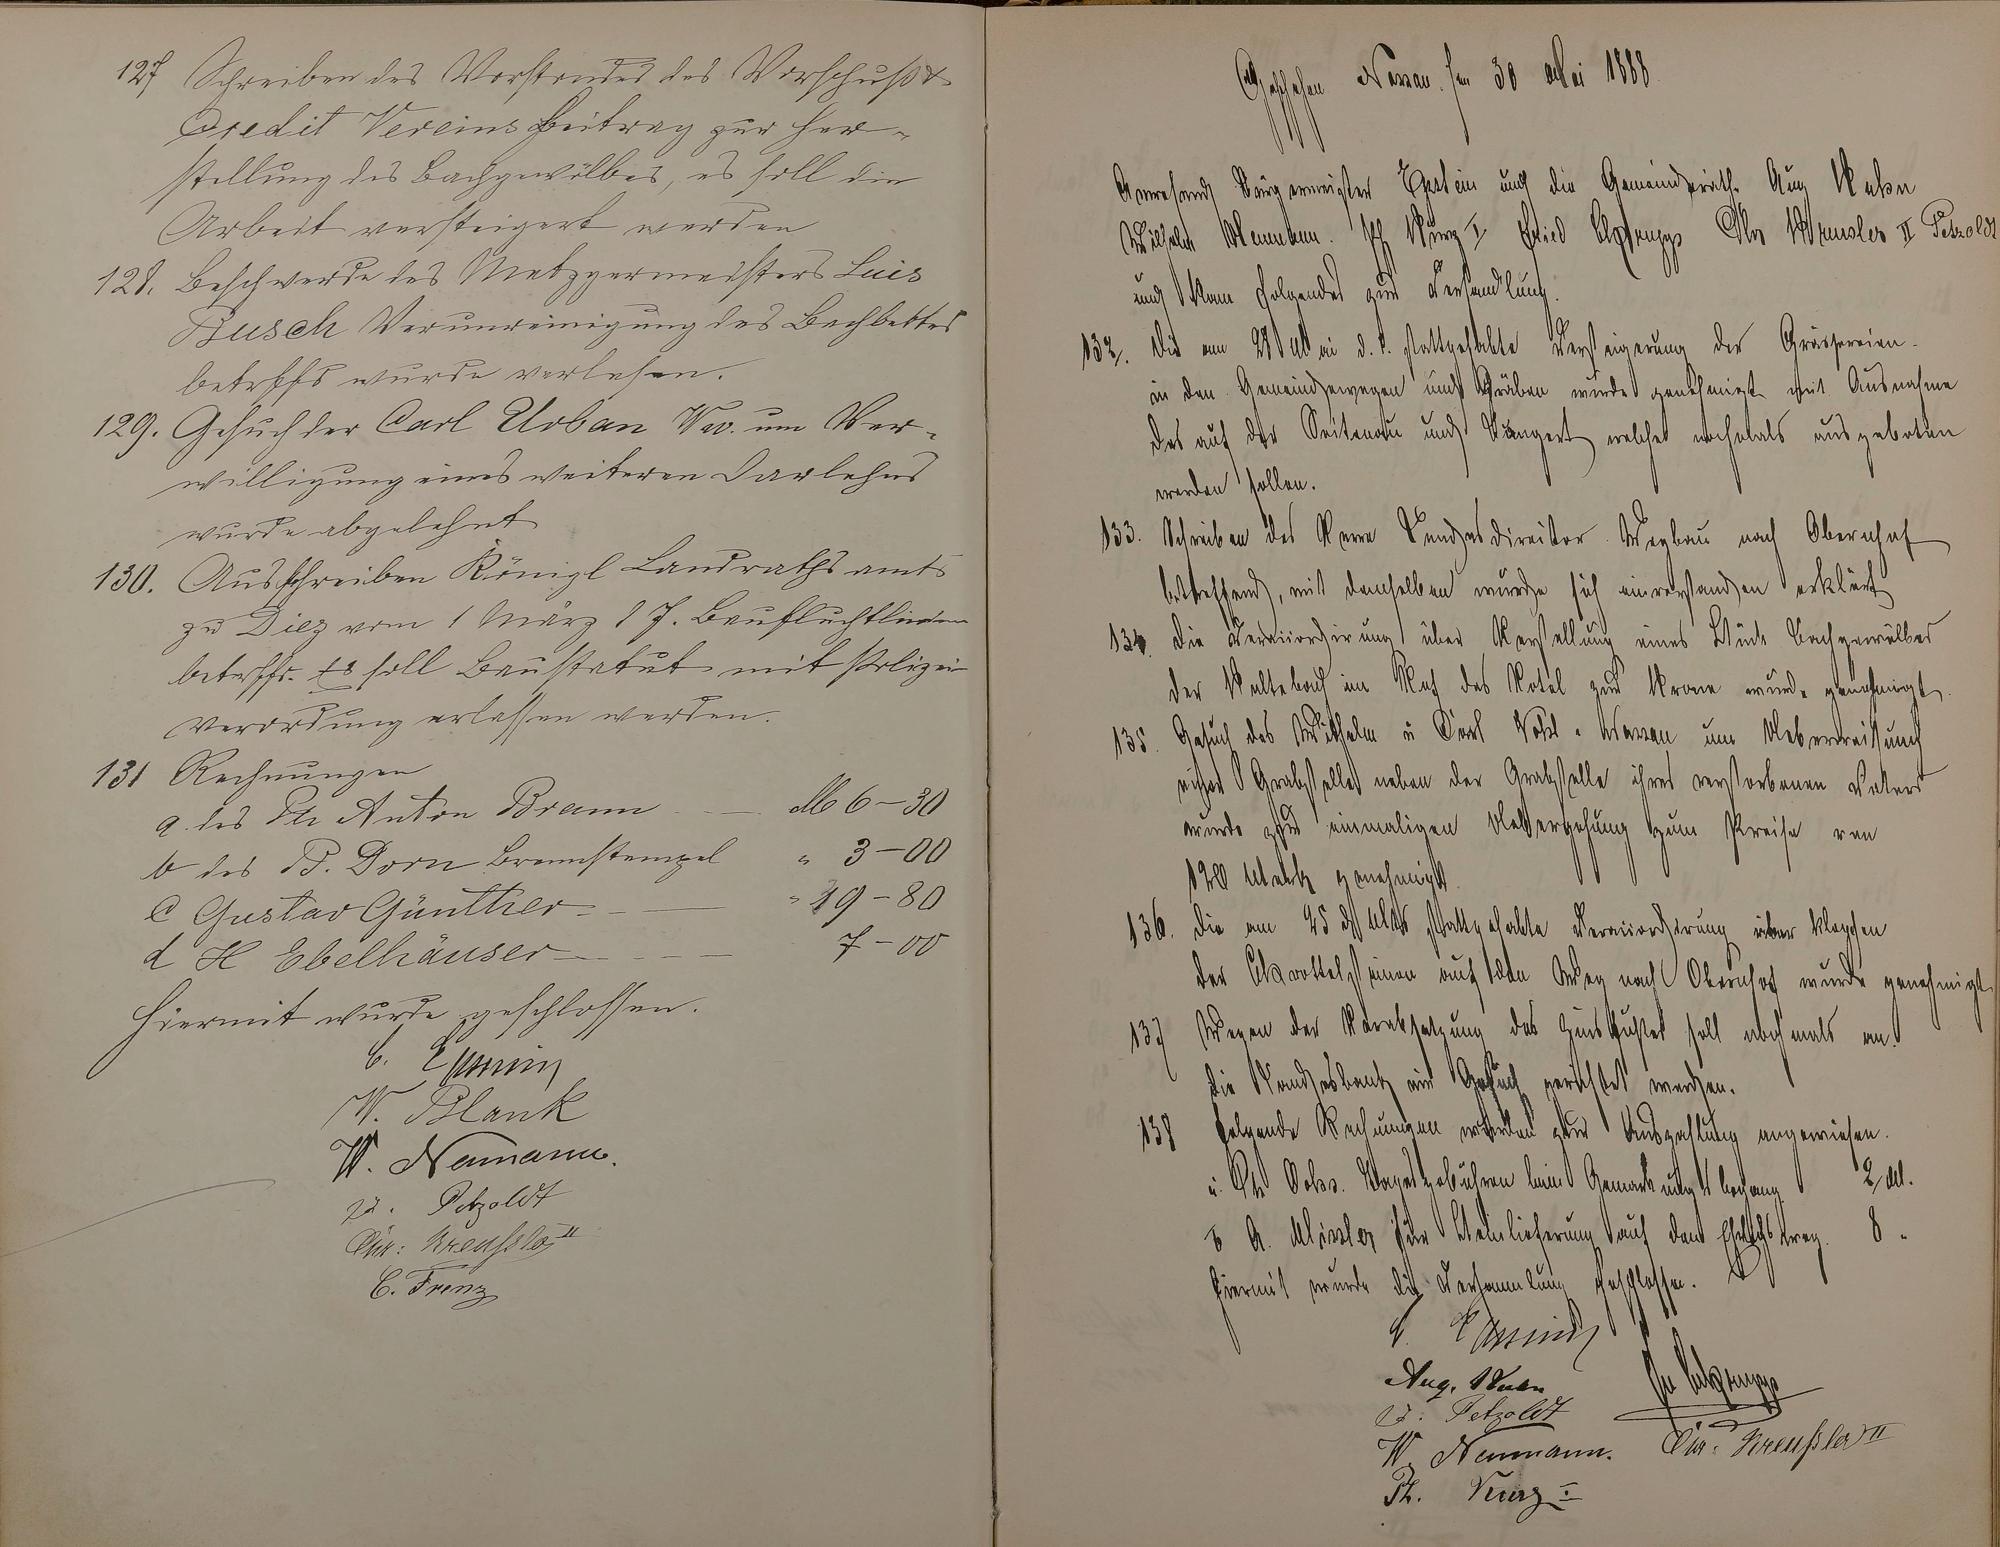 127 Schreiben des Vorstandes des Vorschuß &
Credit Vereins Beitrag zur Her-
stellung des Bachgewölbes, es soll die
Arbeit versteigert werden
128. Beschwerde des Metzgermeisters Luis
Busch Verunreinigung des Bachbettes
betreffs wurde verlesen.
129. Gesuch der Carl Urban Ww. um Ver-
willigung eines weiteren Darlehns
wurde abgelehnt
130. Ausschreiben Königl Landrathsamts
zu Diez vom 1 März d J. Baufluchtlinien
betreffs. Es soll Baustatut mit Polizei
verordnung erlassen werden.
131 Rechnungen
a des Ph Anton Bramm M 6-30
b des P. Dorn Brennstempel " 3-00
c Gustav Günther " 19-80
d H Ebelhäuser 7-00
Hiermit wurde geschlossen.
W. Blank
W. Neumann.
Petzoldt
Chr: Kreußler II
C. Frenz
Geschehen Nassau. den 30 Mai 1888.
Anwesend Bürgermeister und die Gemeinderäthe Aug
Wilhelm Neumann. Ph Kurz I Fried Chr Kreusler II Petzoldt
und kam folgendes zur Verhandlung.
132. Die am 28 Mai d. J. stattgehabte Versteigerung der Gräsereien
in den Gemeindewegen und Gräben wurde genehmigt mit Ausnahme
des auf der und welches nochmals ausgeboten
werden sollen.
133. Schreiben des Herrn Landesdirector Wegbau nach Obernhof
betreffend, mit demselben wurde sich einverstanden erklärt
134. Die Veraccordirung über Herstellung eines Stück Bachgewölbes
der Kaltebach im Hof des Hotel zur Krone wurde genehmigt.
135. Gesuch des Wilhelm u Carl Nassau um Ueberweisung
einer Grabstelle neben der Grabstelle ihres verstorbenen Vaters
wurde zur einmaligen zum Preise von
120 Mark genehmigt.
136. Die am 25 ds Mts stattgehabte Veraccordirung über Klopfen
der auf den Weg nach Obernhof wurde genehmigt
137 Wegen der Herabsetzung des Zinsfußes soll nochmals an
die Landesbank ein Gesuch gerichtet werden.
138 Folgende Rechnungen wurden zur Auszahlung angewiesen.
a. Ph Tagesgebühren beim Gemarkungsbegang 2 M.
b A. für Steinlieferung auf den 8 "
Hiermit wurde die Versammlung geschlossen.
Aug.
Petzoldt
W. Neumann. Chr: Kreußler II
Ph. Kurz I.